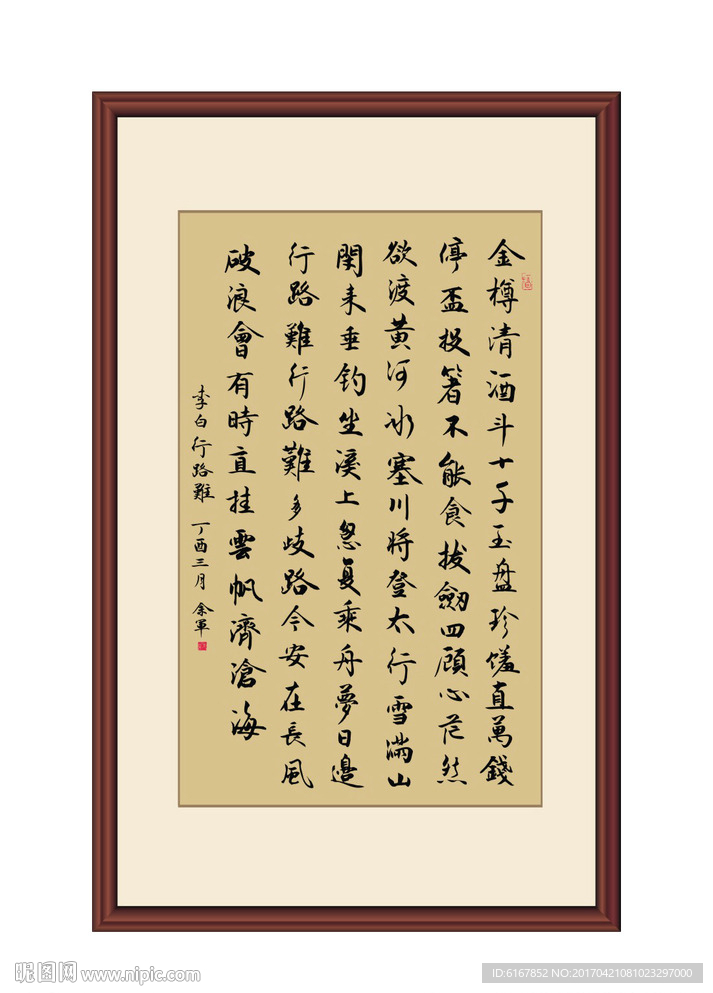 金樽清酒斗十千玉盘珍饈直萬錢
停盃投箸不能食拔劒四顧心茫然
欲渡黃河冰塞川將登太行雪滿山
閑来垂釣坐溪上忽复乘舟夢日邊
行路難行路難多歧路今安在長風
破浪會有時直挂雲帆濟滄海
李白行路難 丁酉三月 余軍
昵图网 www.nipic.com
ID:6167852 NO:20170421081023297000